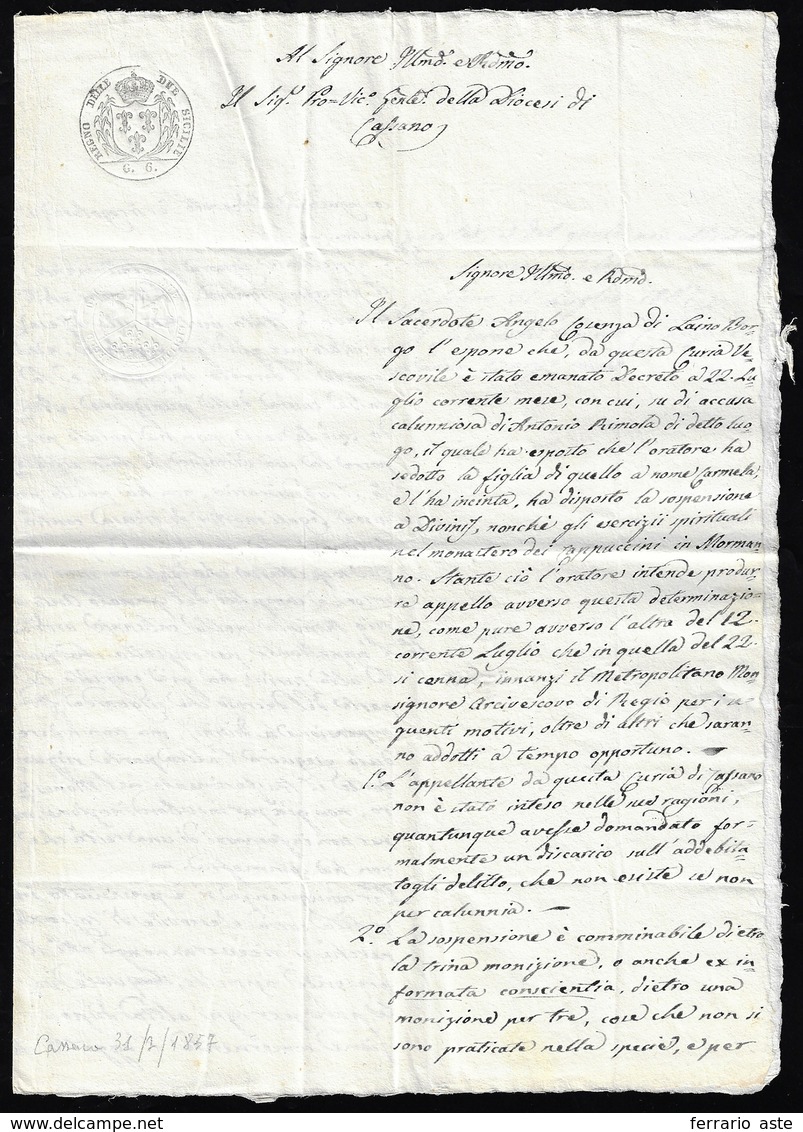 Al Signore Illmo. e Rdmo.
Il Sigr. Pro=Vico. Genle. della Diocesi di
Cassano
REGNO DELLE DUE SICILIE
G. 6.
Signore Illmo. e Rdmo.
Il Sacerdote Angelo Cosenza di Laino Bor-
go l'espone che, da questa Curia Ve-
scovile è stato emanato Decreto a 22. Lu-
glio corrente mese, con cui, su di accusa
calunniosa di Antonio Rimola di detto luo-
go, il quale ha esposto che l'oratore ha
sedotto la figlia di quello a nome Carmela,
e l'ha incinta, ha disposto la sospensione
a Divinis, nonchè gli esercizii spirituali
nel monastero dei Cappuccini in Morman-
no. Stante ciò l'oratore intende produr-
re appello avverso questa determinazio-
ne, come pure avverso l'altra del 12.
corrente Luglio che in quella del 22.
si cenna, innanzi il Metropolitano Mon-
signore Arcivescovo di Regio per i se-
guenti motivi, oltre di altri che saran-
no addotti a tempo opportuno. —
1.o L'appellante da questa Curia di Cassano
non è stato inteso nelle sue ragioni,
quantunque avesse domandato for-
malmente un discarico sull'addebita-
togli delitto, che non esiste se non
per calunnia. —
2.o La sospensione è comminabile dietro
la trina monizione, o anche ex in-
formata conscientia, dietro una
monizione per tre, cose che non si
sono praticate nella specie, e per
Cassano 31/7/1857
ferrario aste